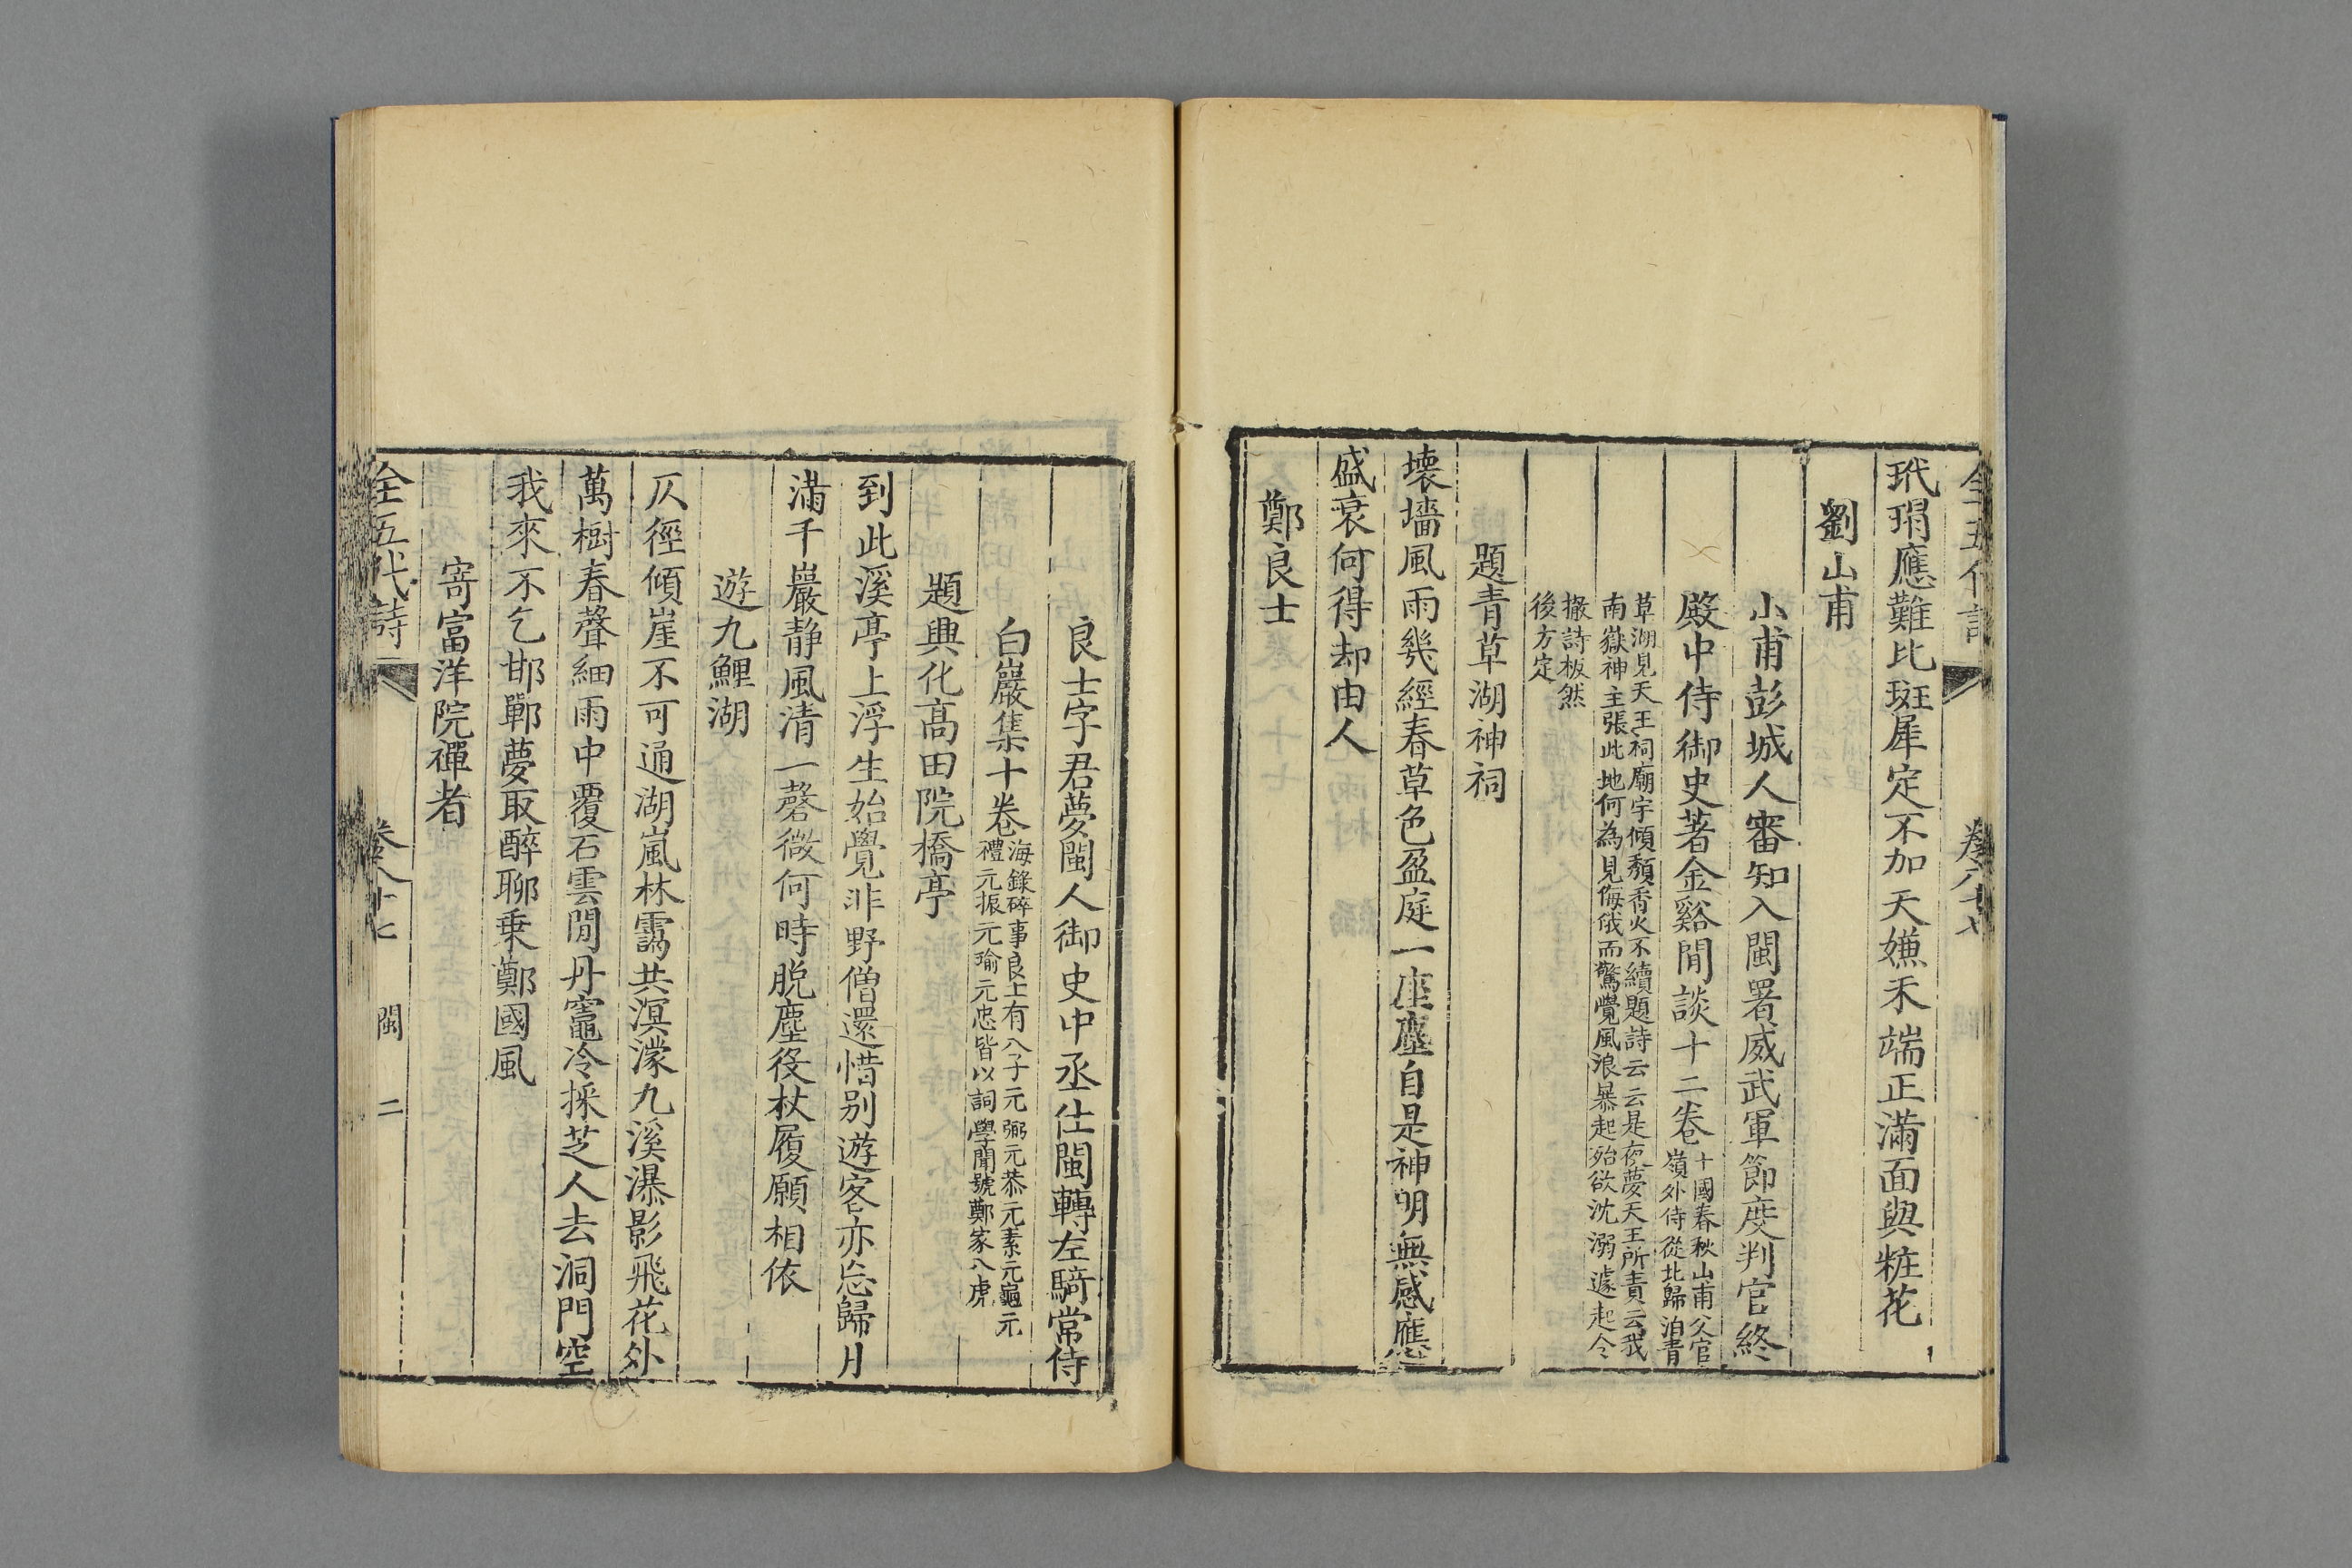 全五代詩 卷八十七
玳瑁應難比斑犀定不加天嫌禾端正滿面與粧花
劉山甫
小甫彭城人審知入閩署威武軍節度判官終
殿中侍御史著金谿閒談十二卷
十國春秋山甫父官
嶺外侍從北歸泊青
草湖見天王祠廟宇傾頹香火不續題詩云云是夜夢天王所責云我
南嶽神主張此地何為見侮俄而驚覺風浪暴起殆欲沈溺遽起令
撤詩板然
後方定
題青草湖神祠
壞墻風雨幾經春草色盈庭一座塵自是神明無感應
盛衰何得却由人
鄭良士
良士字君夢閩人御史中丞仕閩轉左騎常侍
白巖集十卷
海錄碎事良士有八子元弼元恭元素元龜元
禮元振元瑜元忠皆以詞學聞號鄭家八虎
題興化高田院橋亭
到此溪亭上浮生始覺非野僧還惜別遊客亦忘歸月
滿千巖静風清一磬微何時脱塵役杖履願相依
遊九鯉湖
仄徑傾崖不可通湖嵐林靄共溟濛九溪瀑影飛花外
萬樹春聲細雨中覆石雲閒丹竈冷採芝人去洞門空
我來不乞邯鄲夢取醉聊乗鄭國風
寄富洋院禪者
全五代詩 卷八十七 閩 二